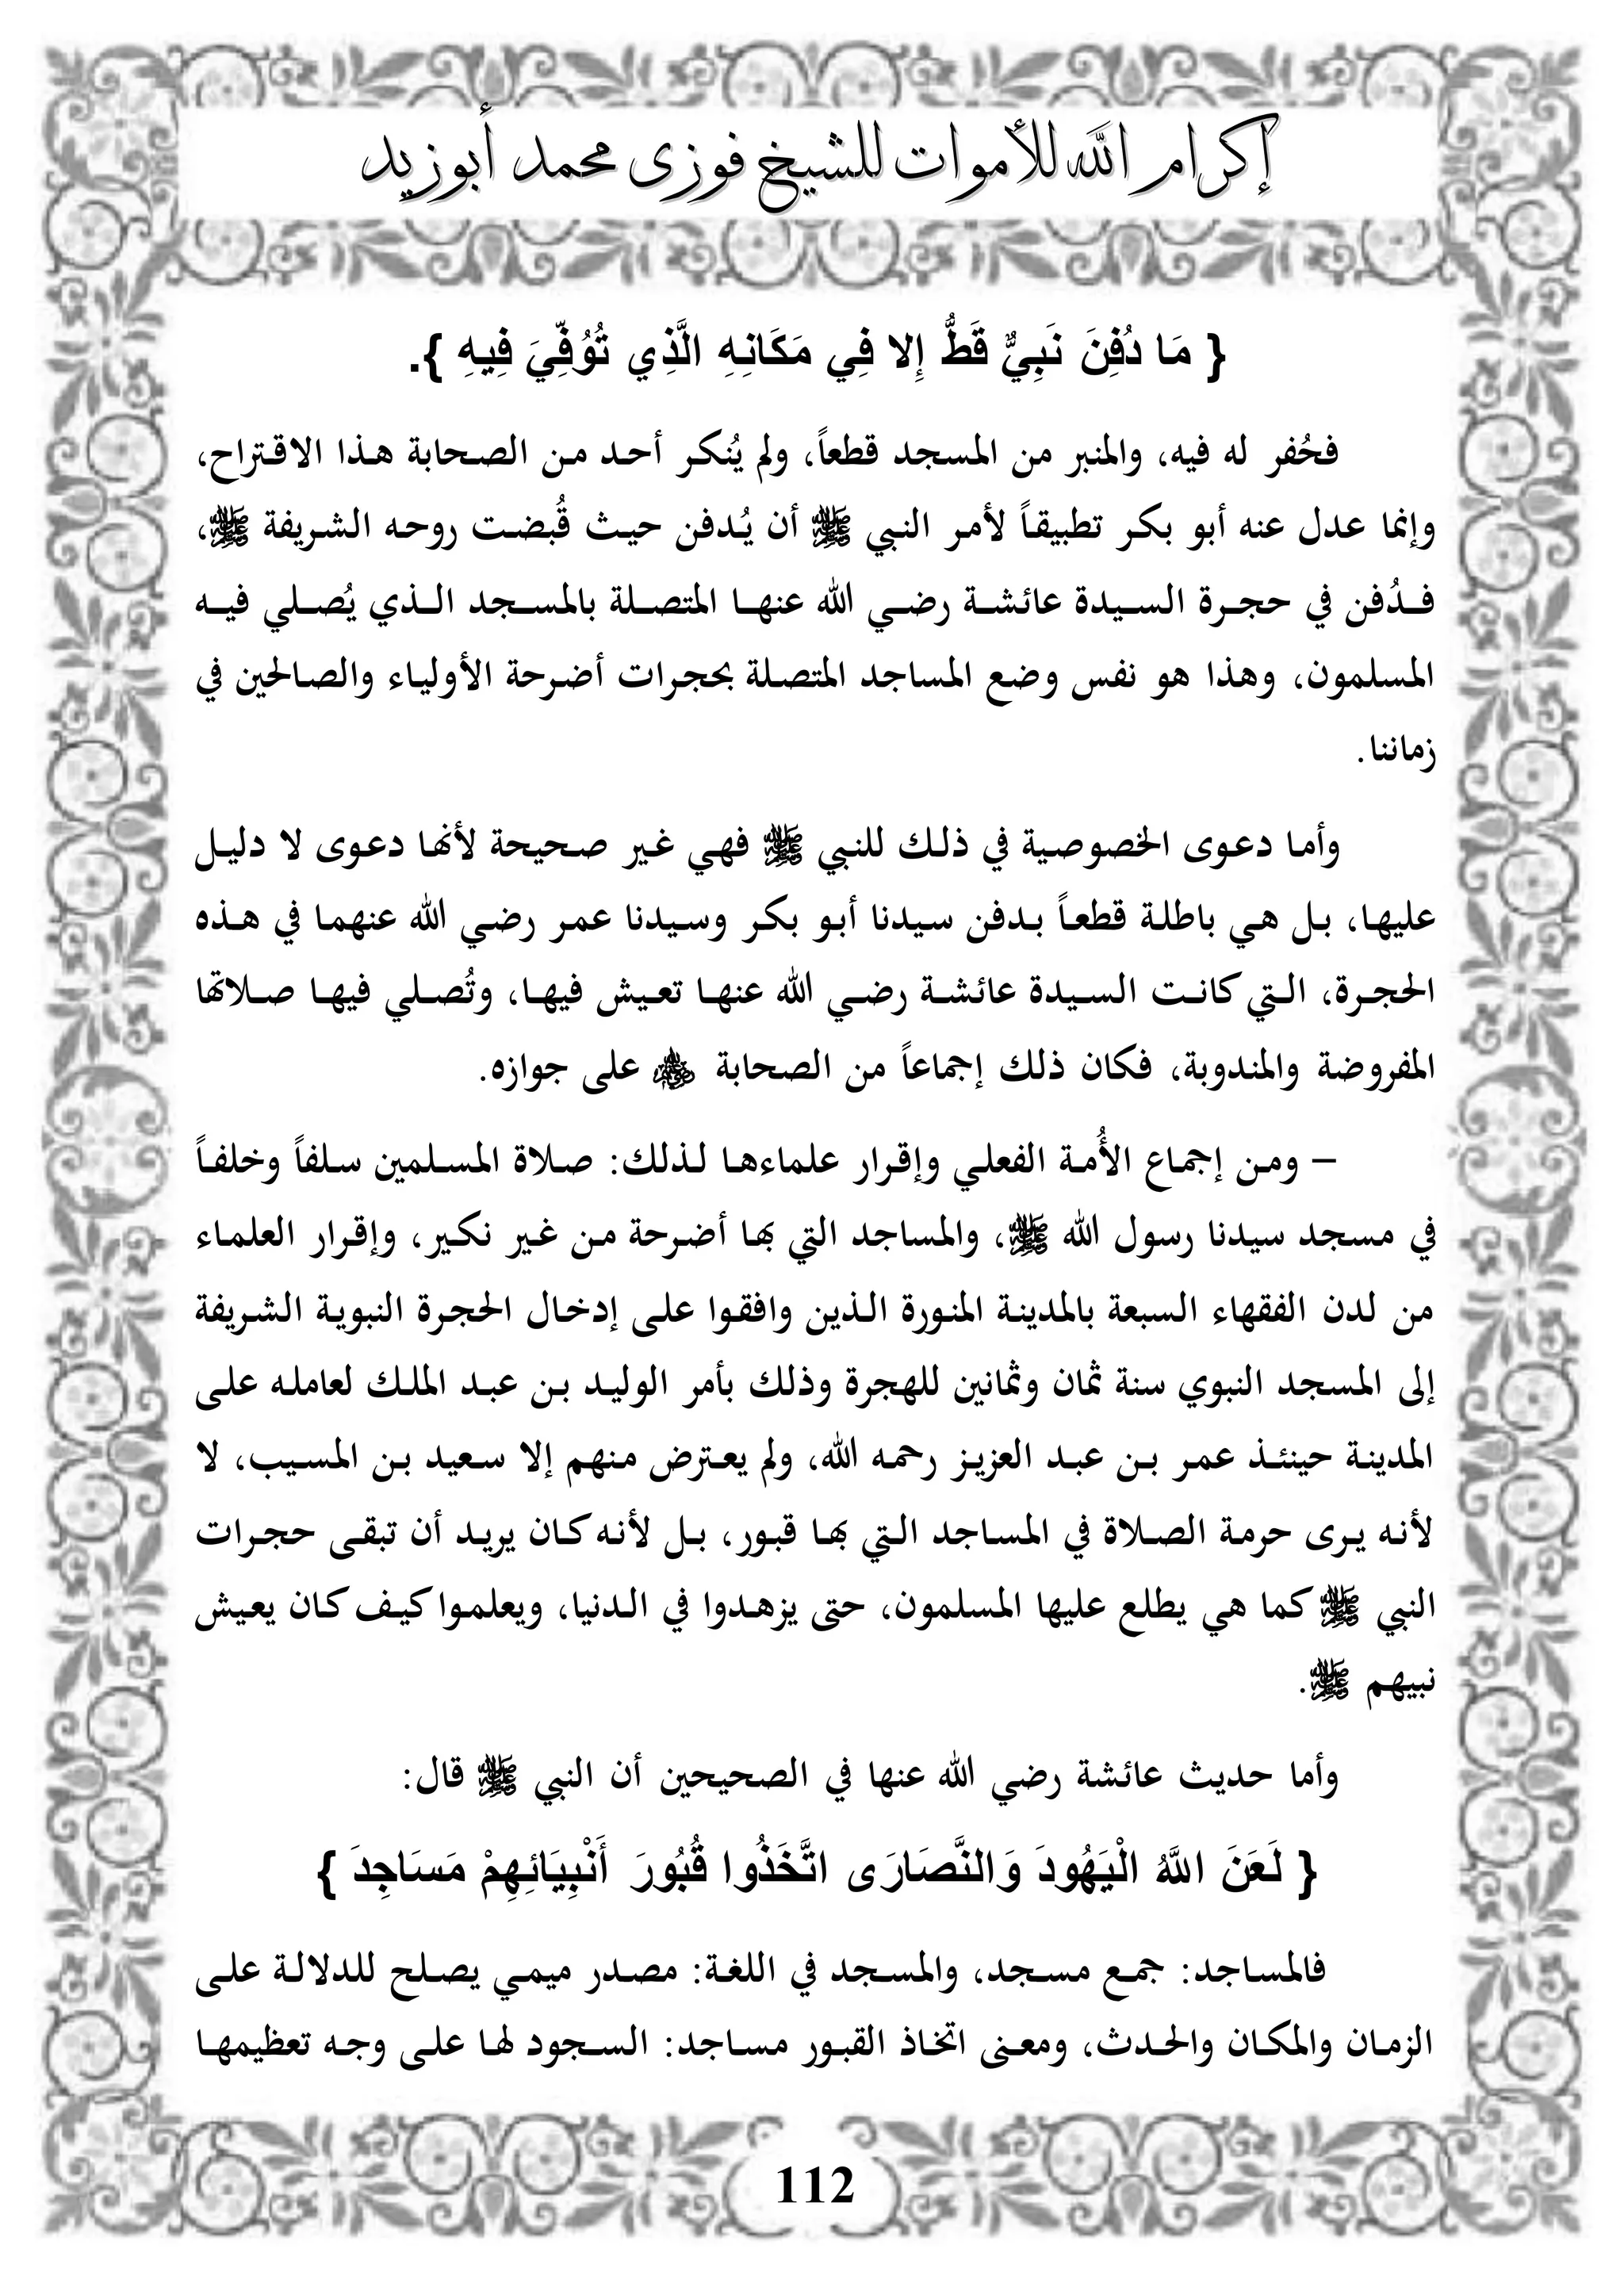 إكرام الله للأموات للشيخ فوزى محمد أبوزيد
{ مَا دُفِنَ نَبِيٌّ قَطُّ إِلا فِي مَكَانِهِ الَّذِي تُوُفِّيَ فِيهِ }.
فحُفر له فيه، والمنبر من المسجد قطعاً، ولم يُنكر أحد من الصحابة هذا الاقتراح،
وإنما عدل عنه أبو بكر تطبيقاً لأمر النبي ﷺ أن يُدفن حيث قُبضت روحه الشريفة ﷺ،
فدُفن في حجرة السيدة عائشة رضي الله عنها المتصلة بالمسجد الذي يُصلي فيه
المسلمون، وهذا هو نفس وضع المساجد المتصلة بحجرات أضرحة الأولياء والصالحين في
زماننا.
وأما دعوى الخصوصية في ذلك للنبي ﷺ فهي غير صحيحة لأنها دعوى لا دليل
عليها، بل هي باطلة قطعاً بدفن سيدنا أبو بكر وسيدنا عمر رضي الله عنهما في هذه
الحجرة، التي كانت السيدة عائشة رضي الله عنها تعيش فيها، وتُصلي فيها صلاتها
المفروضة والمندوبة، فكان ذلك إجماعاً من الصحابة ؓ على جوازه.
– ومن إجماع الأُمة الفعلي وإقرار علماءها لذلك: صلاة المسلمين سلفاً وخلفاً
في مسجد سيدنا رسول الله ﷺ، والمساجد التي بها أضرحة من غير نكير، وإقرار العلماء
من لدن الفقهاء السبعة بالمدينة المنورة الذين وافقوا على إدخال الحجرة النبوية الشريفة
إلى المسجد النبوي سنة ثمان وثمانين للهجرة وذلك بأمر الوليد بن عبد الملك لعامله على
المدينة حينئذ عمر بن عبد العزيز رحمه الله، ولم يعترض منهم إلا سعيد بن المسيب، لا
لأنه يرى حرمة الصلاة في المساجد التي بها قبور، بل لأنه كان يريد أن تبقى حجرات
النبي ﷺ كما هي يطلع عليها المسلمون، حتى يزهدوا في الدنيا، ويعلموا كيف كان يعيش
نبيهم ﷺ.
وأما حديث عائشة رضي الله عنها في الصحيحين أن النبي ﷺ قال:
{ لَعَنَ اللَّهُ الْيَهُودَ وَالنَّصَارَى اتَّخَذُوا قُبُورَ أَنْبِيَائِهِمْ مَسَاجِدَ }
فالمساجد: جمع مسجد، والمسجد في اللغة: مصدر ميمي يصلح للدلالة على
الزمان والمكان والحدث، ومعنى اتخاذ القبور مساجد: السجود لها على وجه تعظيمها
112